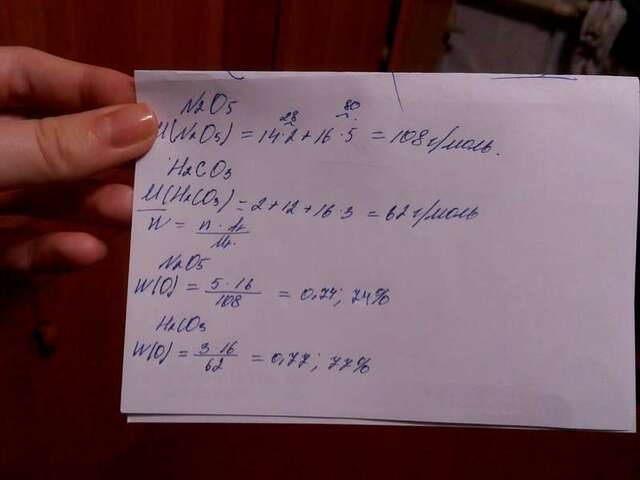 N2O5
28 80
M(N2O5) = 14·2+16·5 = 108 г/моль.
H2CO3
M(H2CO3) = 2+12+16·3 = 62 г/моль
W = n·Ar / Mr.
N2O5
W(O) = 5·16 / 108 = 0,74; 74%
H2CO3
W(O) = 3 16 / 62 = 0,77; 77%